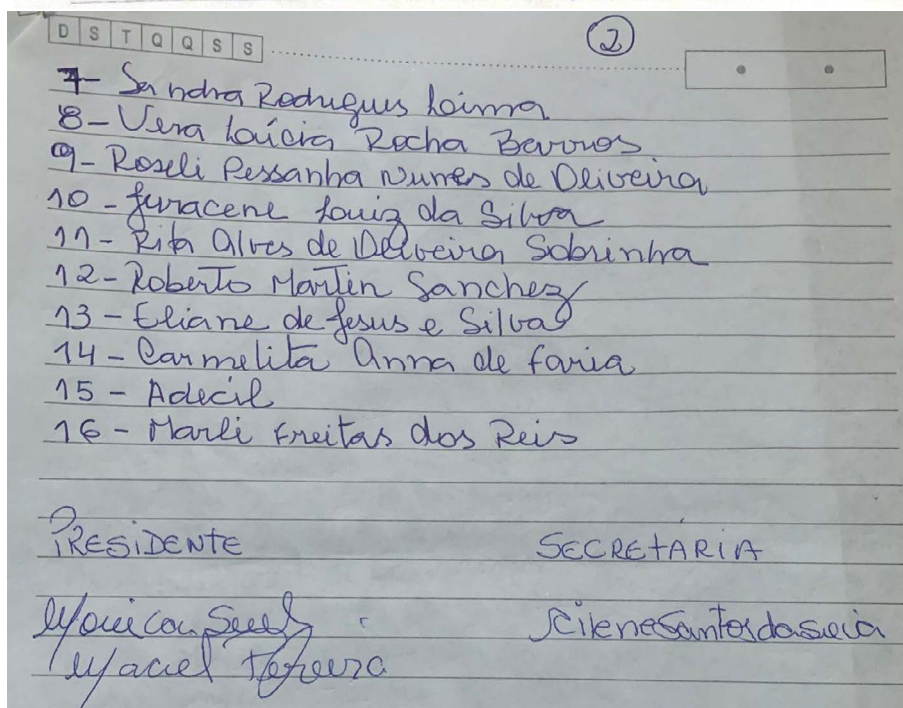 D S T Q Q S S
2
7- Sandra Rodrigues Loima
8- Vera Laúcia Rocha Barros
9- Roseli Pessanha Nunes de Oliveira
10 - Juracene Louiz da Silva
11- Rita Alves de Oelveira Sobrinha
12- Roberto Martin Sanchez
13 - Eliane de Jesus e Silva
14 - Carmelita Anna de faria
15 - Adecil
16 - Marli Freitas dos Reis
PRESIDENTE SECRETÁRIA
Monica Maciel